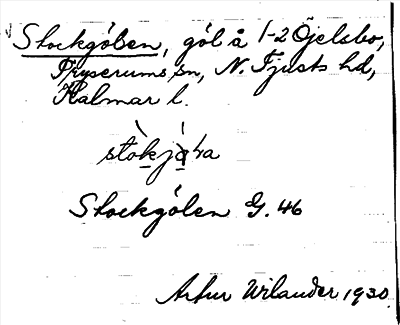 Stockgölen, göl å 1-2 Öjelsbo,
Tryserums sn, N. Tjusts hd,
Kalmar l.
Stockgölen G. 46
Artur Wilander 1930.